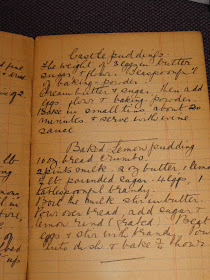 Castle puddings.
The weight of 3 eggs in butter
sugar & flour. Teaspoonful
of baking-powder.
Cream butter & sugar, then add
eggs flour & baking powder.
Bake in small tins about 20
minutes & serve with wine
sauce
Baked Lemon pudding
10 oz bread crumbs.
2 pints milk. 2 oz butter. 1 lemon
1/4 lb pounded sugar. 4 eggs, 1
tablespoonful brandy.
Boil the milk stir in butter.
Pour over bread, add sugar &
lemon rind grated. Beat
eggs & stir in with brandy. Pour
into dish & bake 3/4 hour.